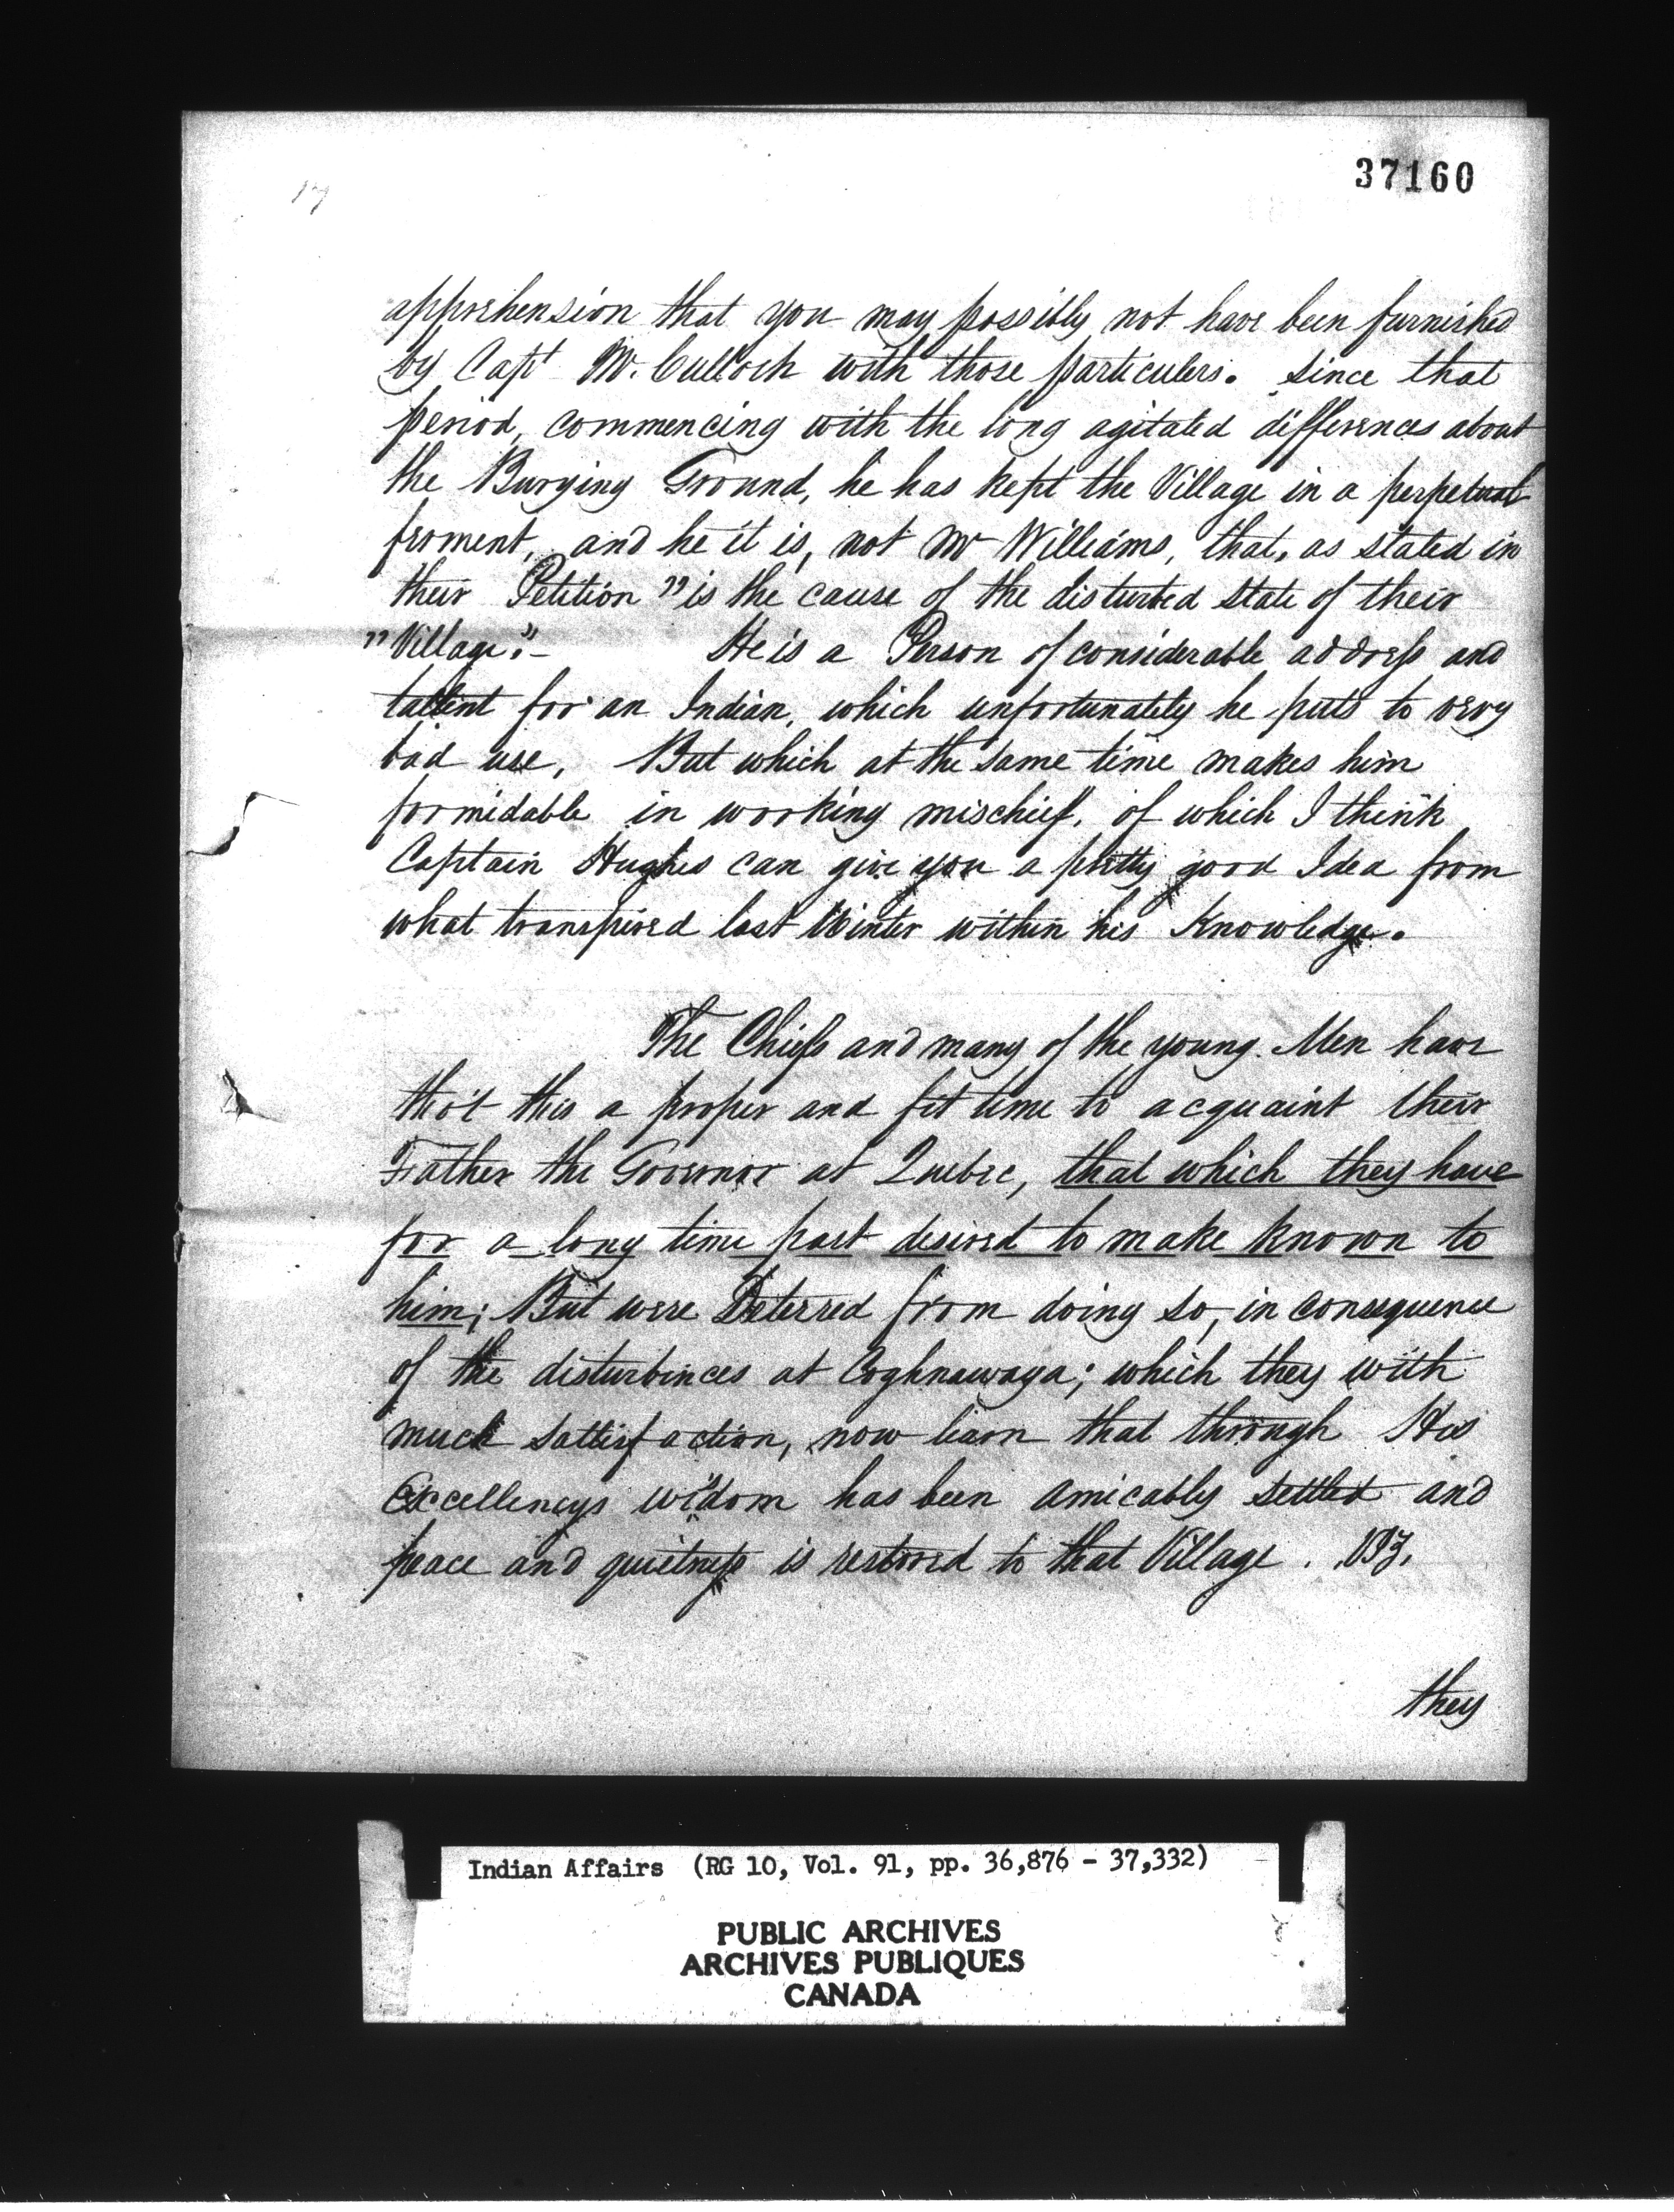 37160
17
apprehension that you may possibly not have been furnished
by Capt McCulloch with those particulers. Since that
period, commencing with the long agitated differences about
the Burying Ground, he has kept the Village in a perpetual
froment, and he it is, not Mr Williams, that, as stated in
their Petition "is the cause of the disturbed state of their
"Village."- He is a Person of considerable address and
tallent for an Indian, which unfortunately he puts to very
bad use, But which at the same time makes him
formidable in working mischief, of which I think
Captain Hughes can give you a pretty good Idea from
what transpired last Winter within his Knowledge.
The Chiefs and many of the young Men have
tho't this a proper and fit time to acquaint their
Father the Governor at Quebec, that which they have
for a long time past desired to make known to
him; But were Deterred from doing so, in consequence
of the disturbances at Coghnawaga; which they with
much sattisfaction, now learn that through His
Excellencys wisdom has been amicably settled and
peace and quietness is restored to that Village. Viz.
they
Indian Affairs (RG 10, Vol. 91, pp. 36,876 - 37,332)
PUBLIC ARCHIVES
ARCHIVES PUBLIQUES
CANADA